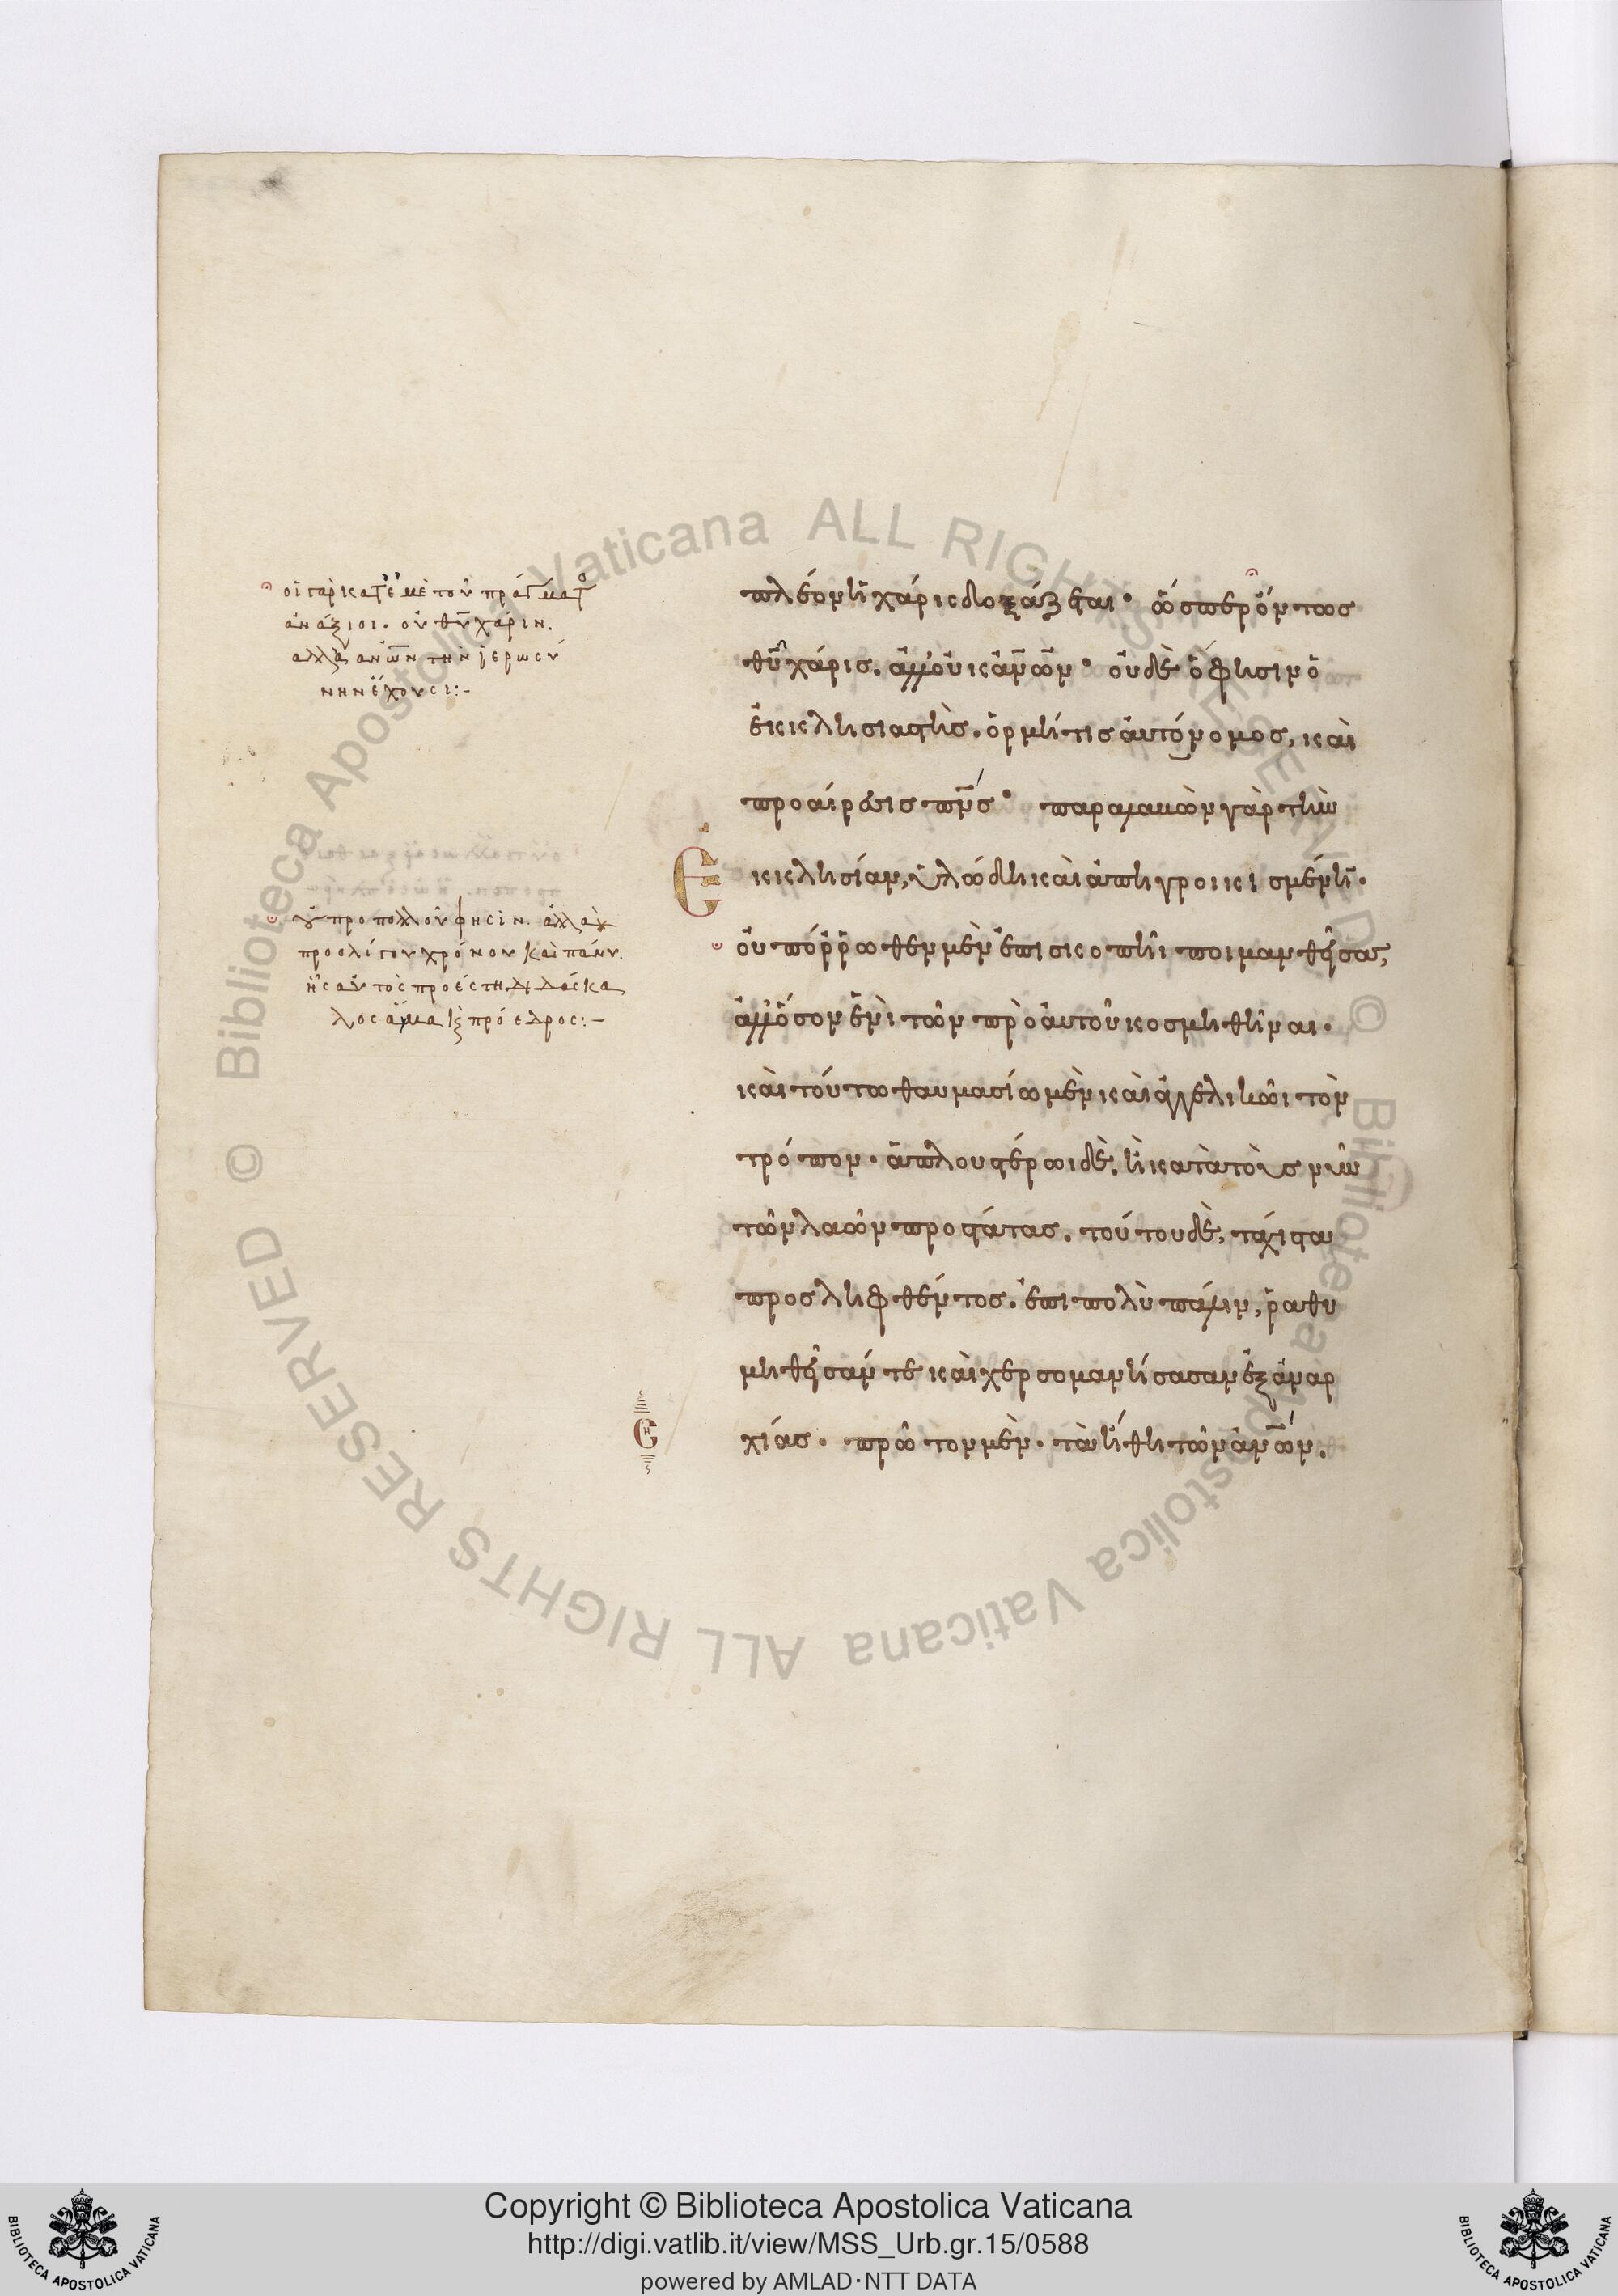 οἱ γὰρ κατ ἐμὲ τοῦ πράγματο
ἀνάξιοι. οὐ θῡ χάριν.
αλλὰ ανω̅ν τὴν ἱερωσύ
νην ἔχουσι:-
οὐ προ πολλοῦ φησὶν. ἀλλὰ
προ ολίγου χρόνου καὶ πάνυ.
ἧς αὐτὸς προέστη διδάσκα
λος ἅμα κ πρόεδρος:-
πλέον ἡ χάρις δοξάζεται· ὥσπερ ὄντως
θῡ χάρις. ἀλλ' οὐκ ἀν̅ων· οὐδὲ ὅ φησιν ὁ
ἐκκλησιαστὴς. ὁρμή τις αὐτόνομος, καὶ
προαίρεσις πν̅ς· παραλαβὼν γὰρ τὴν
Ἐκκλησίαν, ὑλώδη καὶ ἀπηγροικισμένην·
οὐ πόρρωθεν μὲν ἐπισκοπῆι ποιμανθεῖσαν,
ἀλλ' ὅσον ἑνὶ τῶν πρὸ αὐτοῦ κοσμηθῆναι.
καὶ τούτω θαυμασίω μὲν καὶ ἀγγελικῶι τὸν
τρόπον. ἁπλουστέρωι δὲ, ἢ κατὰ τοὺς νῦν
τῶν λαῶν προστάτας. τούτου δὲ, τάχιστα
προσληφθέντος. ἐπιπολὺ πάλιν, ῥαθυ
μηθεῖσάν τε καὶ χερσομανήσασαν ἐξ ἀναρ
χίας. πρῶτον μὲν. τὰ ἤθη τῶν ἀν̅ων.
Copyright © Biblioteca Apostolica Vaticana
http://digi.vatlib.it/view/MSS_Urb.gr.15/0588
powered by AMLAD·NTT DATA
BIBLIOTECA APOSTOLICA VATICANA
BIBLIOTECA APOSTOLICA VATICANA
© Biblioteca Apostolica Vaticana ALL RIGHTS RESERVED
© Biblioteca Apostolica Vaticana ALL RIGHTS RESERVED